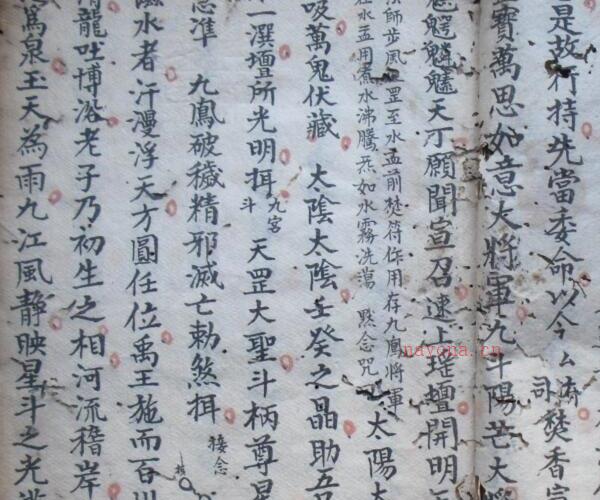 是故行持先當委命以今ㄙ法司焚香宣
寶萬思如意大將軍九斗陽芒大
魁魓魖天丁願聞宣召速上瑤壇開明
法師步風罡至水盂前焚符作用存九鳳將軍
在水盂用煮水沸騰炁如水霧洗蕩 黙念咒曰 太陽大
吸萬鬼伏藏 太陰太陰壬癸之晶助五
一潠壇所光明揖九宮斗 天罡大聖斗柄尊星
急準 九鳳破穢精邪滅亡勅煞揖 接念
水者汗漫浮天方圓任位禹王施而百川
清龍吐博浴老子乃初生之相河流稽岸
為泉玉天為雨九江風静映星斗之光
nayona.cn